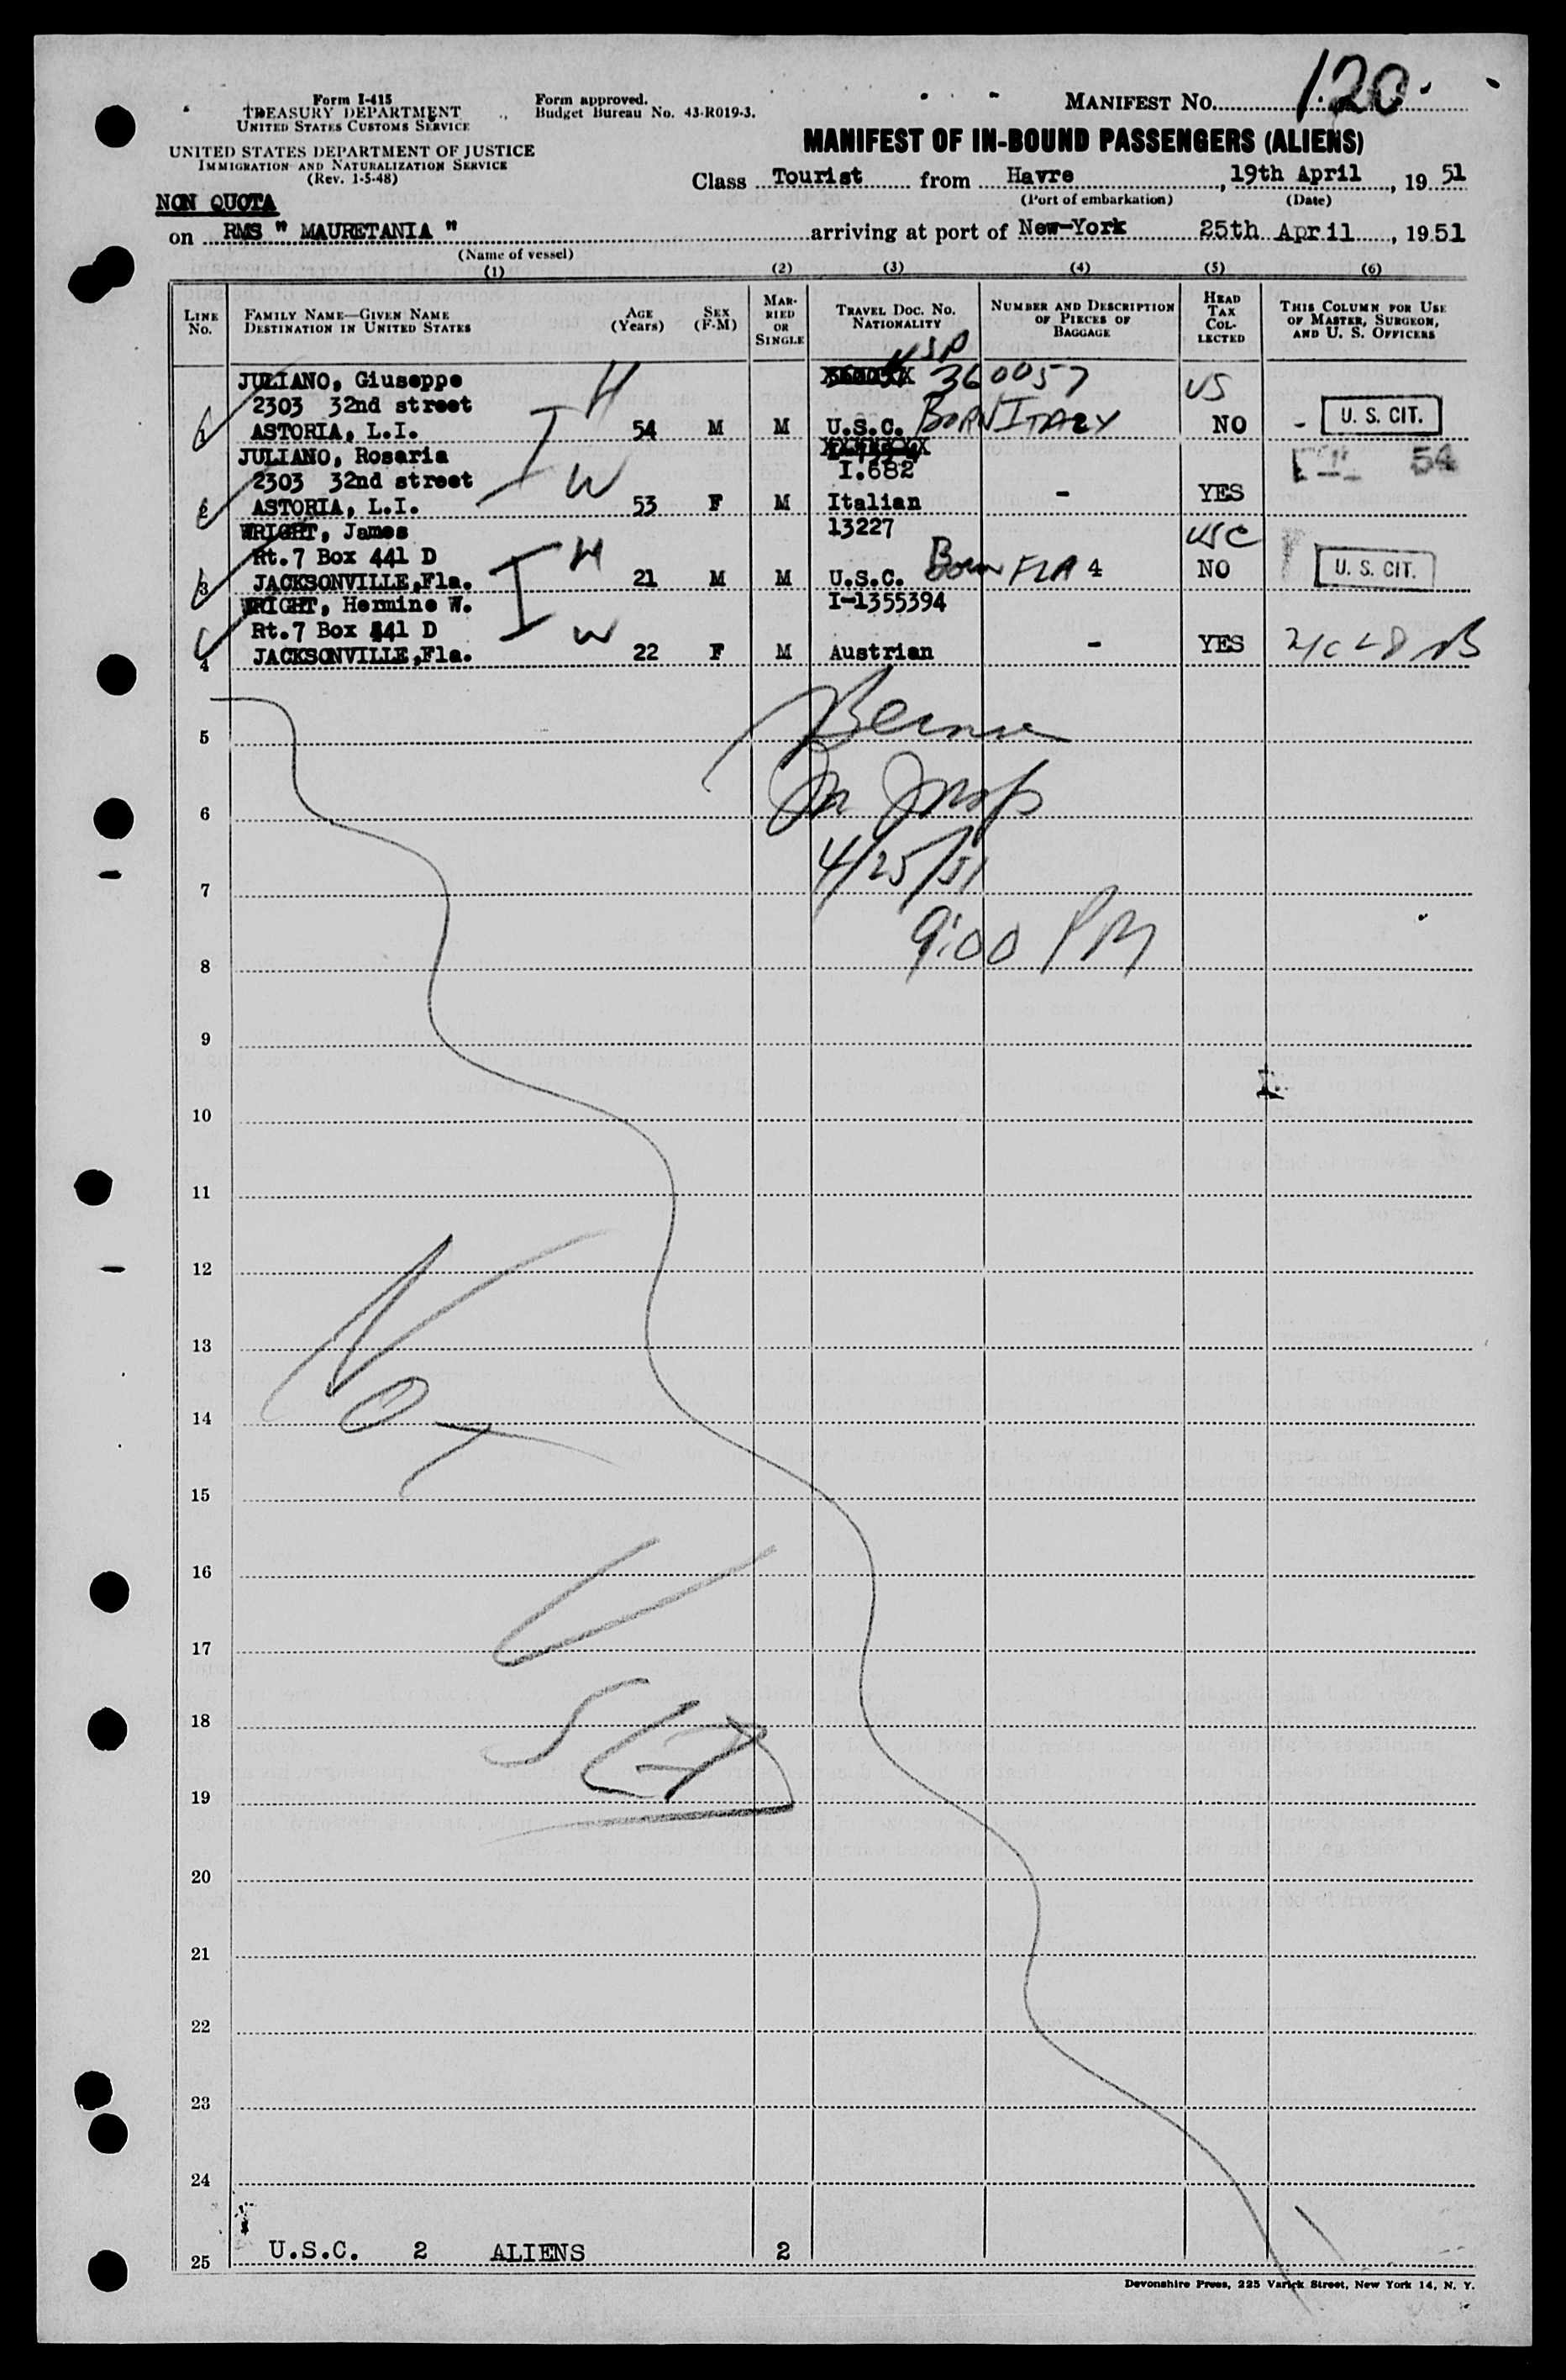 120
Form I-415
TREASURY DEPARTMENT
UNITED STATES CUSTOMS SERVICE
UNITED STATES DEPARTMENT OF JUSTICE
IMMIGRATION AND NATURALIZATION SERVICE
(Rev. 1-5-48)
Form approved.
Budget Bureau No. 43-R019-3.
MANIFEST NO.
MANIFEST OF IN-BOUND PASSENGERS (ALIENS)
Class Tourist from Havre, 19th April, 19 51
(Port of embarkation) (Date)
NON QUOTA
on RMS " MAURETANIA " arriving at port of New-York 25th April, 19 51
(Name of vessel)
(1) (2) (3) (4) (5) (6)
LINE No.
FAMILY NAME—GIVEN NAME
DESTINATION IN UNITED STATES
AGE (Years)
SEX (F-M)
MARRIED OR SINGLE
TRAVEL DOC. NO.
NATIONALITY
NUMBER AND DESCRIPTION OF PIECES OF BAGGAGE
HEAD TAX COLLECTED
THIS COLUMN FOR USE OF MASTER, SURGEON, AND U. S. OFFICERS
JULIANO, Giuseppe USP 360057 US
2303 32nd street H
1 ASTORIA, L.I. 54 M M U.S.C. BORN ITALY NO - U. S. CIT.
JULIANO, Rosaria 54
2303 32nd street W I.682
2 ASTORIA, L.I. 53 F M Italian - YES
WRIGHT, James 13227 USC
Rt.7 Box 441 D H
3 JACKSONVILLE,Fla. 21 M M U.S.C. Born FLA 4 NO U. S. CIT.
WRIGHT, Hermine W. I-1355394
Rt.7 Box 441 D W
4 JACKSONVILLE,Fla. 22 F M Austrian - YES
5
6
4/25/51
7
9:00 PM
8
9
10
11
12
13
14
15
16
17
18
19
20
21
22
23
24
25 U.S.C. 2 ALIENS 2
Devonshire Press, 225 Varick Street, New York 14, N. Y.